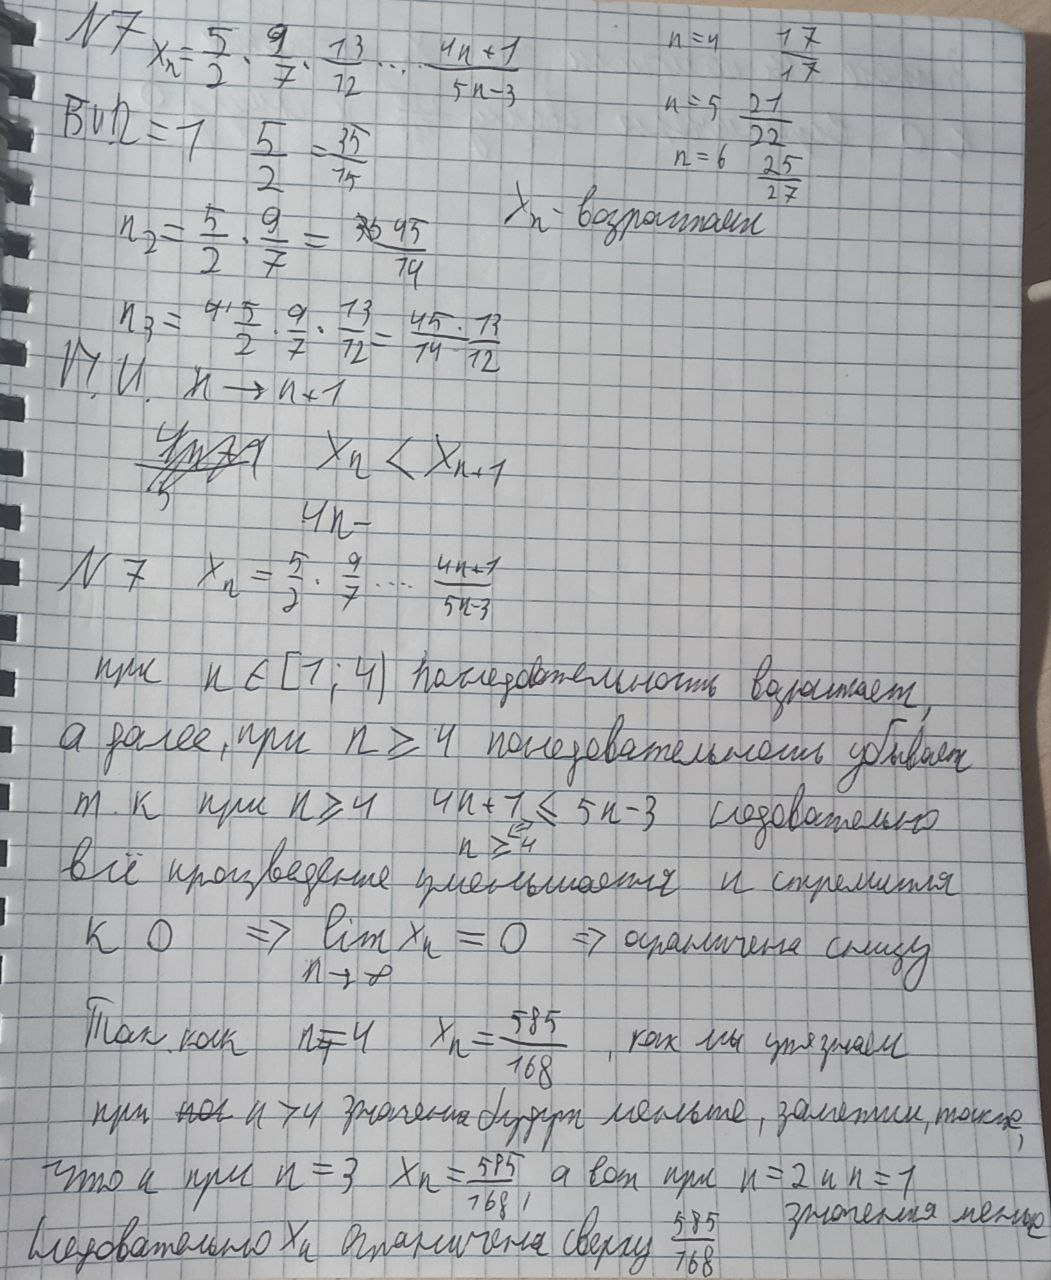 N7 x_n = 5/2 · 9/7 · 13/12 ... (4n+1)/(5n-3)
n=4 17/17
n=5 21/22
n=6 25/27
n=1 5/2 = 35/15
x_n - возрастает
n_2 = 5/2 · 9/7 = 45/14
n_3 = 5/2 · 9/7 · 13/12 = 45/14 · 13/12
П.И. n → n+1
x_n < x_{n+1}
4n-
N 7 x_n = 5/2 · 9/7 ... (4n+1)/(5n-3)
при n ∈ [1; 4) последовательность возрастает,
а далее, при n ≥ 4 последовательность убывает
т.к при n ≥ 4 4n+1 ≤ 5n-3 следовательно
<=>
n ≥ 4
всё произведение уменьшается и стремится
к 0 => lim x_n = 0 => ограничена снизу
n→∞
Так как n=4 x_n = 585/168, как мы узнаем
при n > 4 значения будут меньше, заметим, также,
что и при n = 3 x_n = 585/168, а вот при n = 2 и n = 1
значения меньше
Следовательно x_n ограничена сверху 585/168